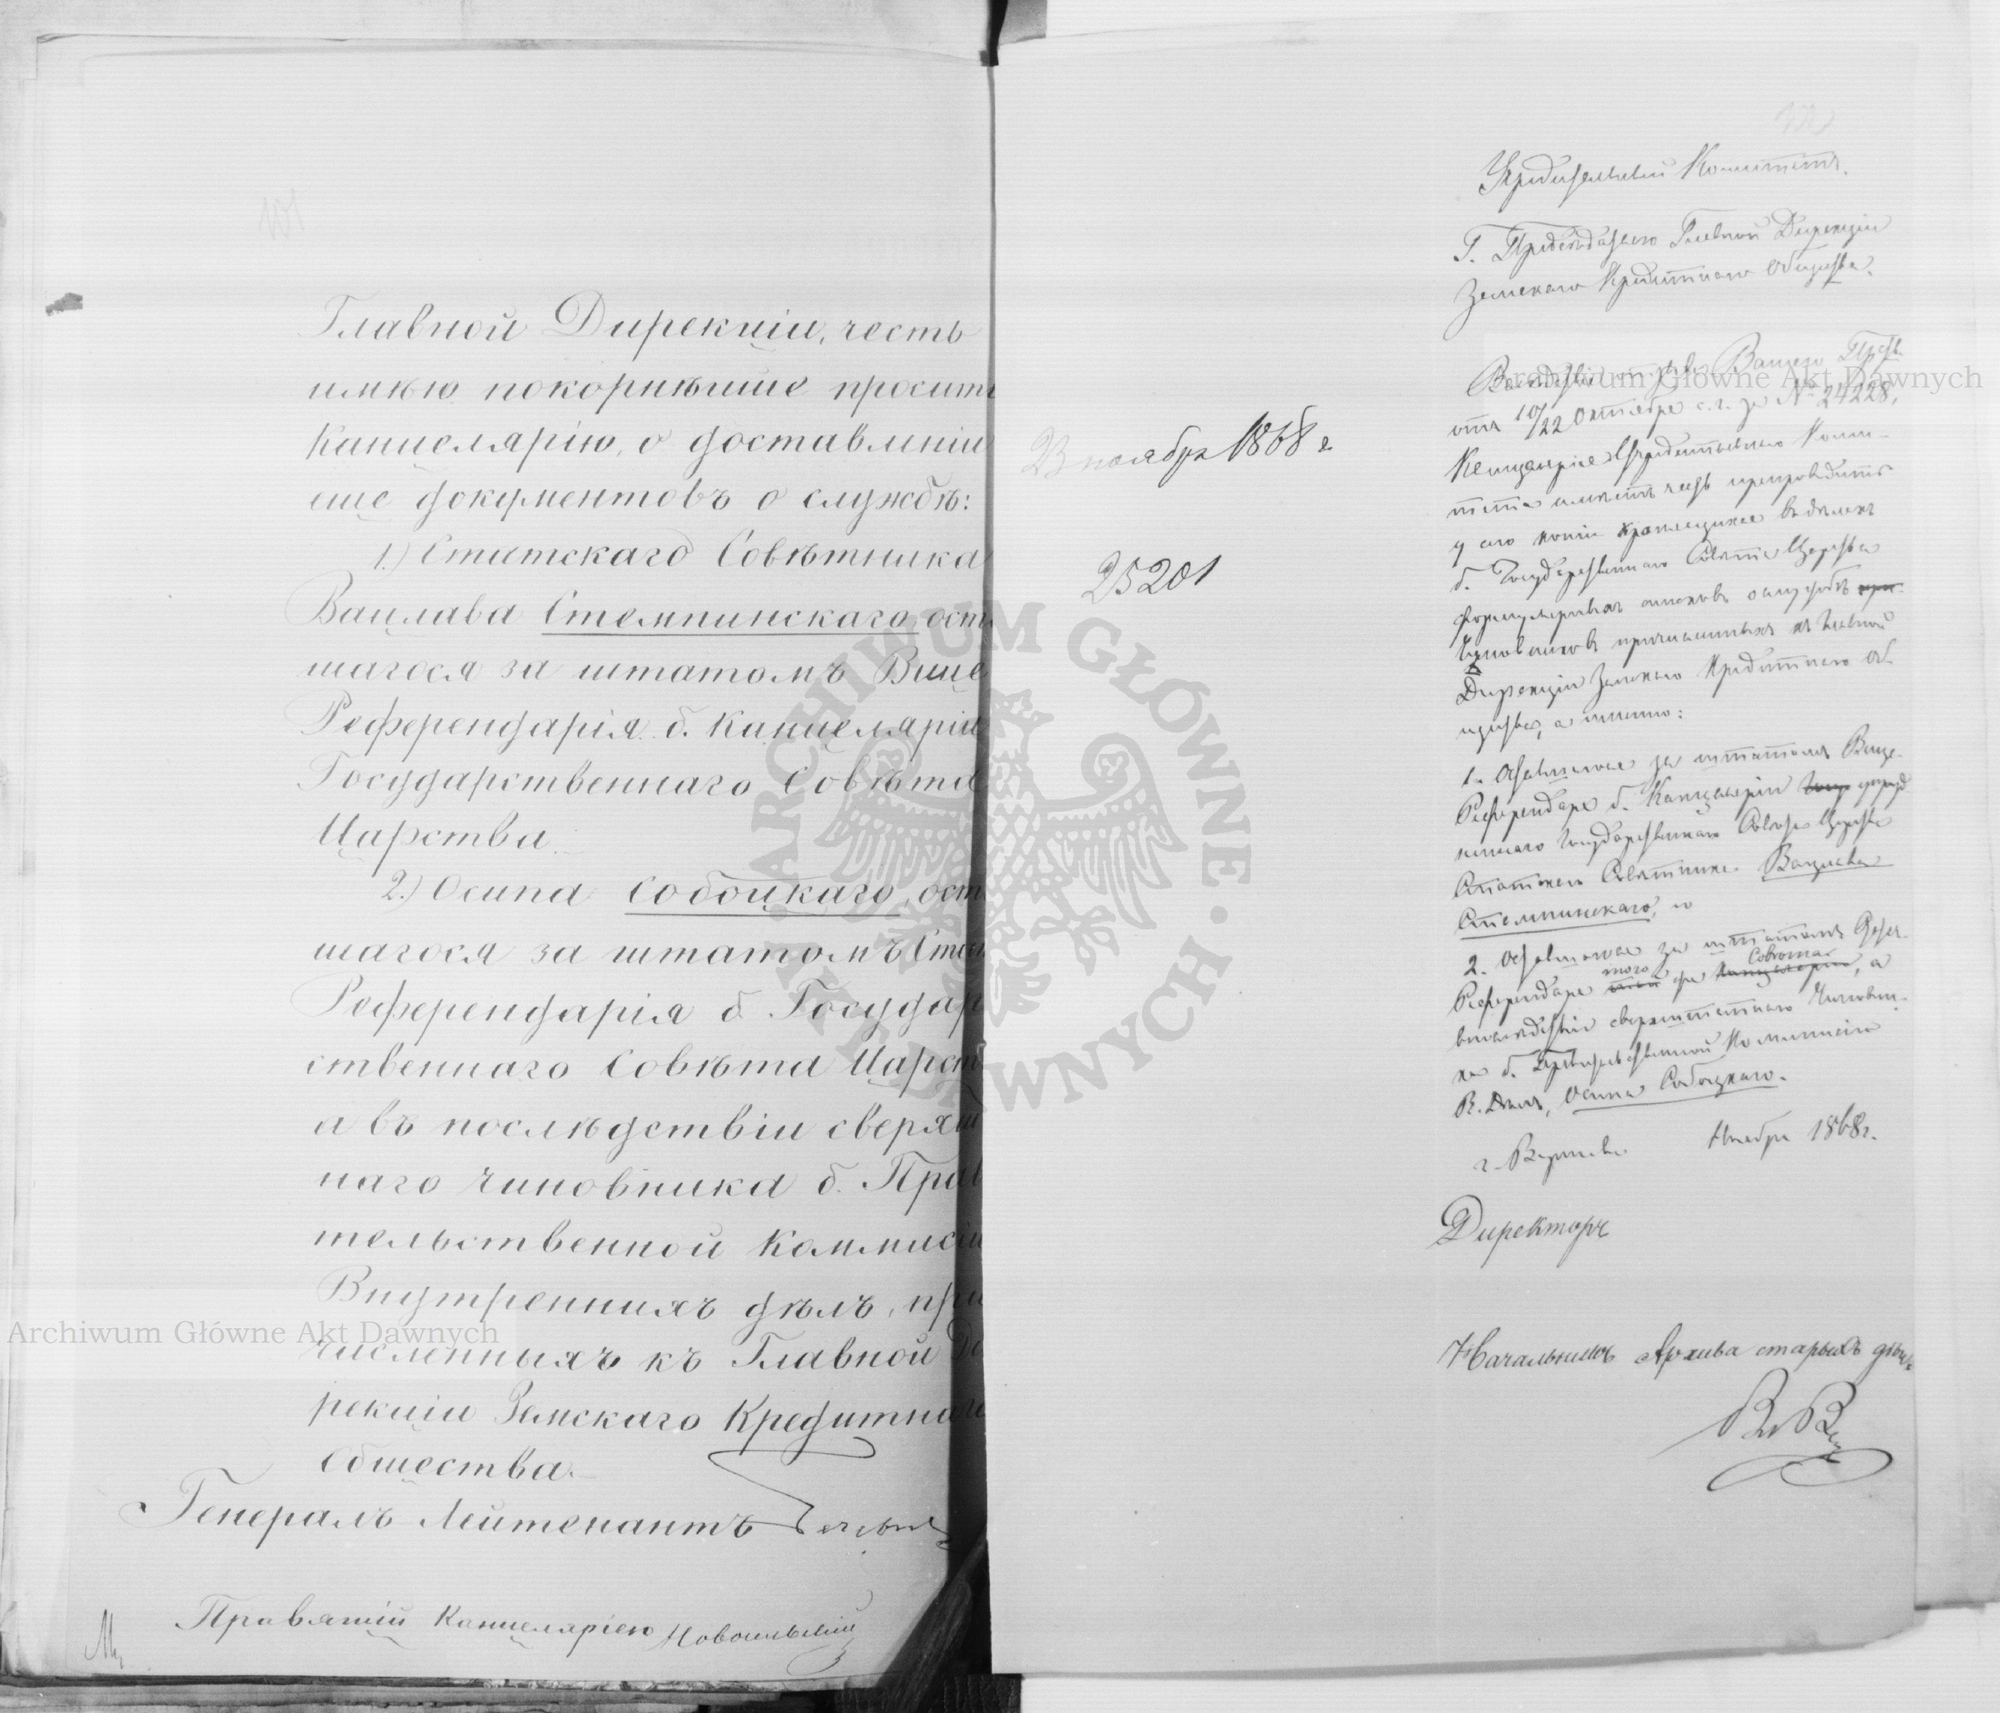 101
Главной Дирекціи, честь
имѣю покорнѣйше просить
Канцелярію, о доставленіи
еще документовъ о службѣ:
1.) Статскаго Совѣтника
Вацлава Стемпинскаго, ост
шагося за штатомъ Вице
Референдарія б. Канцеляріи
Государственнаго Совѣта
Царства.
2.) Осипа Собоцкаго, ост
шагося за штатомъ Стат
Референдарія б. Государ
ственнаго Совѣта Царст
а въ послѣдствіи сверхш
наго чиновника б. Прав
тельственной Коммисіи
Внутреннихъ дѣлъ, при
численныхъ къ Главной Ди
рекціи Земскаго Кредитнаго
Общества.
Генералъ Лейтенантъ
Правящій Канцеляріею
23 ноября 1868 г
25201
Учредительный Комитетъ.
Г. Предсѣдателю Главной Дирекціи
Земскаго Кредитнаго Общества.
Вслѣдствіе отзыва Вашего Прев.
отъ 10/22 Октября с. г. за № 24228,
Канцелярія Учредительнаго Коми-
тета имѣетъ честь препроводить
у сего копіи хранящихся въ дѣлахъ
б. Государственнаго Совѣта Царства
формулярныхъ списковъ о службѣ
Чиновниковъ причисленныхъ къ Главной
Дирекціи Земскаго Кредитнаго Об-
щества, а именно:
1. Оставшагося за штатомъ Вице-
Референдаря б. Канцеляріи упразд
неннаго Государственнаго Совѣта Царства
Статскаго Совѣтника Вацлава
Стемпинскаго, и
2. Оставшагося за штатомъ
Совѣта
Референдаря того же Канцеляріи, а
впослѣдствіи сверхштатнаго Чиновни-
ка б. Правительственной Коммисіи
В. Дѣлъ, Осипа Собоцкаго.
г. Варшава Ноября 1868 г.
Директоръ
Начальникъ Архива старыхъ дѣлъ
Archiwum Główne Akt Dawnych
Archiwum Główne Akt Dawnych
ARCHIWUM GŁÓWNE AKT DAWNYCH